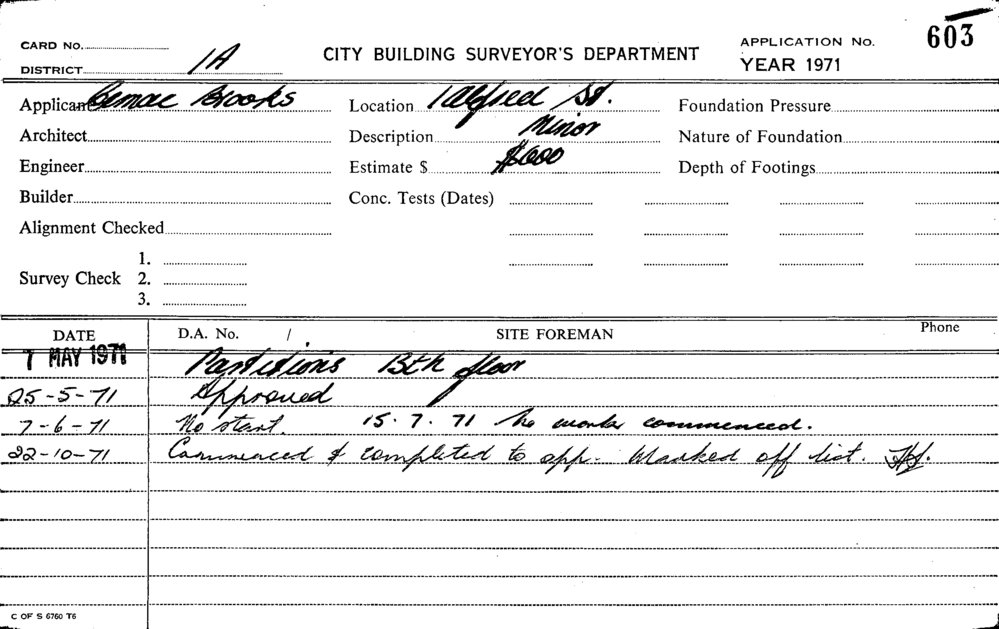 603
CARD No.
DISTRICT 1A
CITY BUILDING SURVEYOR'S DEPARTMENT
APPLICATION No.
YEAR 1971
Applicant Cemac Brooks
Location 1 Alfred St.
Foundation Pressure
Architect
Description Minor
Nature of Foundation
Engineer
Estimate $ $600
Depth of Footings
Builder
Conc. Tests (Dates)
Alignment Checked
Survey Check 1.
2.
3.
DATE D.A. No. / SITE FOREMAN Phone
7 MAY 1971 Partitions 13th floor
25-5-71 Approved
7-6-71 No start. 15.7.71 No works commenced.
22-10-71 Commenced & completed to app. Marked off list.
C OF S 6760 T6